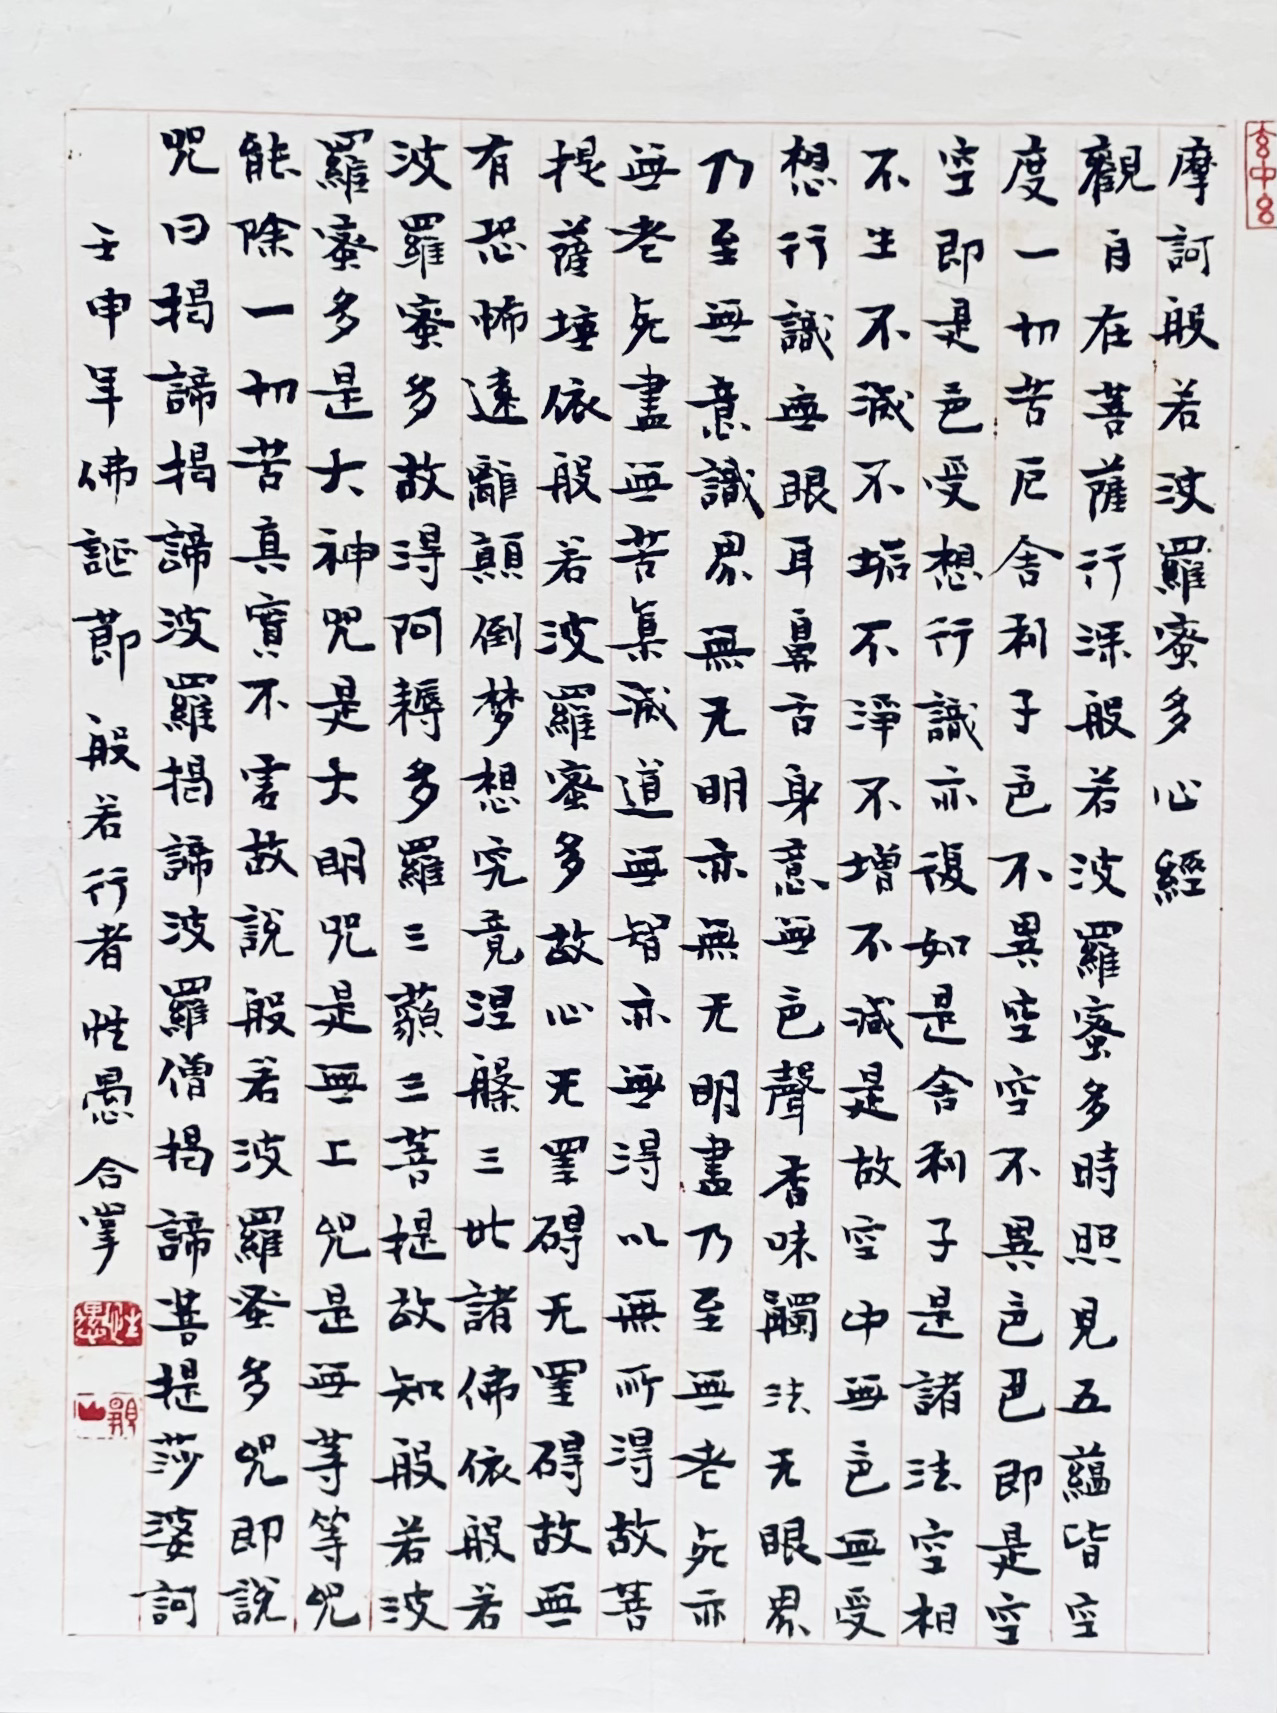 玄中玄
摩訶般若波羅蜜多心經
觀自在菩薩行深般若波羅蜜多時照見五蘊皆空
度一切苦厄舍利子色不異空空不異色色即是空
空即是色受想行識亦復如是舍利子是諸法空相
不生不滅不垢不淨不增不減是故空中無色無受
想行識無眼耳鼻舌身意無色聲香味觸法无眼界
乃至無意識界無无明亦無无明盡乃至無老死亦
無老死盡無苦集滅道無智亦無得以無所得故菩
提薩埵依般若波羅蜜多故心无罣碍无罣碍故無
有恐怖遠離顛倒梦想究竟涅槃三世諸佛依般若
波羅蜜多故得阿耨多羅三藐三菩提故知般若波
羅蜜多是大神咒是大明咒是無上咒是無等等咒
能除一切苦真實不虛故說般若波羅蜜多咒即說
咒曰揭諦揭諦波羅揭諦波羅僧揭諦菩提莎婆訶
壬申年佛誕節 般若行者性愚合掌
性愚